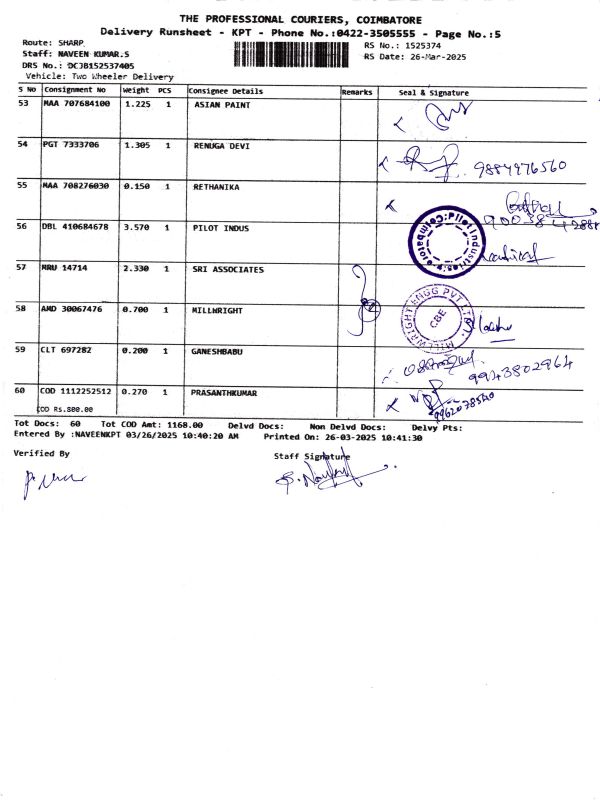 THE PROFESSIONAL COURIERS, COIMBATORE
Delivery Runsheet - KPT - Phone No.:0422-3505555 - Page No.:5
Route: SHARP
Staff: NAVEEN KUMAR.S
DRS No.: DCJB152537405
Vehicle: Two Wheeler Delivery
RS No.: 1525374
RS Date: 26-Mar-2025
S No Consignment No Weight PCS Consignee Details Remarks Seal & Signature
53 MAA 707684100 1.225 1 ASIAN PAINT
54 PGT 7333706 1.305 1 RENUGA DEVI 9884976560
55 MAA 708276030 0.150 1 RETHANIKA
56 DBL 410684678 3.570 1 PILOT INDUS
Pilot Industries Coimbatore
57 MRU 14714 2.330 1 SRI ASSOCIATES
58 AMD 30067476 0.700 1 MILLWRIGHT
MILLWRIGHT ENGG PVT LTD. CBE
59 CLT 697282 0.200 1 GANESHBABU 9943802964
60 COD 1112252512 0.270 1 PRASANTHKUMAR
COD Rs.800.00
Tot Docs: 60 Tot COD Amt: 1168.00 Delvd Docs: Non Delvd Docs: Delvy Pts:
Entered By :NAVEENKPT 03/26/2025 10:40:20 AM Printed On: 26-03-2025 10:41:30
Verified By
Staff Signature